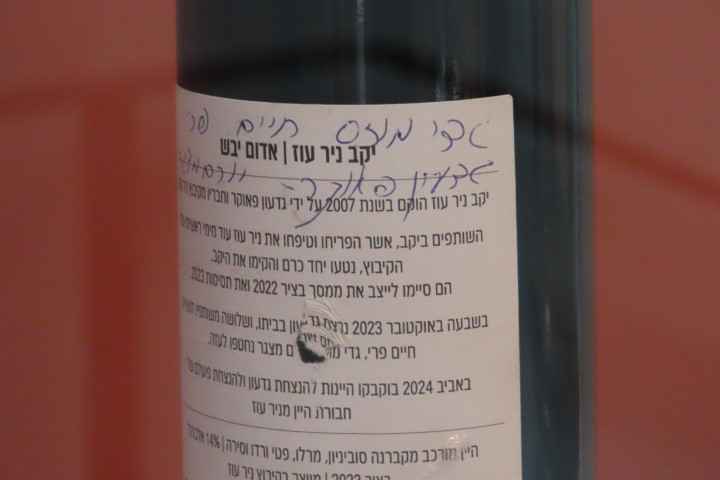 גדי מוזס חיים פרי
יקב ניר עוז | אדום יבש
גדעון פאוקר -
יקב ניר עוז הוקם בשנת 2007 על ידי גדעון פאוקר וחבריו מקיבוץ
השותפים ביקב, אשר הפריחו וטיפחו את ניר עוז עוד מימי ראשית
הקיבוץ, נטעו יחד כרם והקימו את היקב.
הם סיימו לייצב את ממסך בציר 2022 ואת תסיסות 2023.
בשבעה באוקטובר 2023 נרצח גדעון בביתו, ושלושה משותפיו
חיים פרי, גדי מצגר נחטפו לעזה.
באביב 2024 בוקבקו היינות להנצחת גדעון ולהנצחת פועלם של
חבורת היין מניר עוז
היין מורכב מקברנה סוביניון, מרלו, פטי ורדו וסירה | 14% אלכוהול
בציר 2022 | מיוצר בקיבוץ ניר עוז